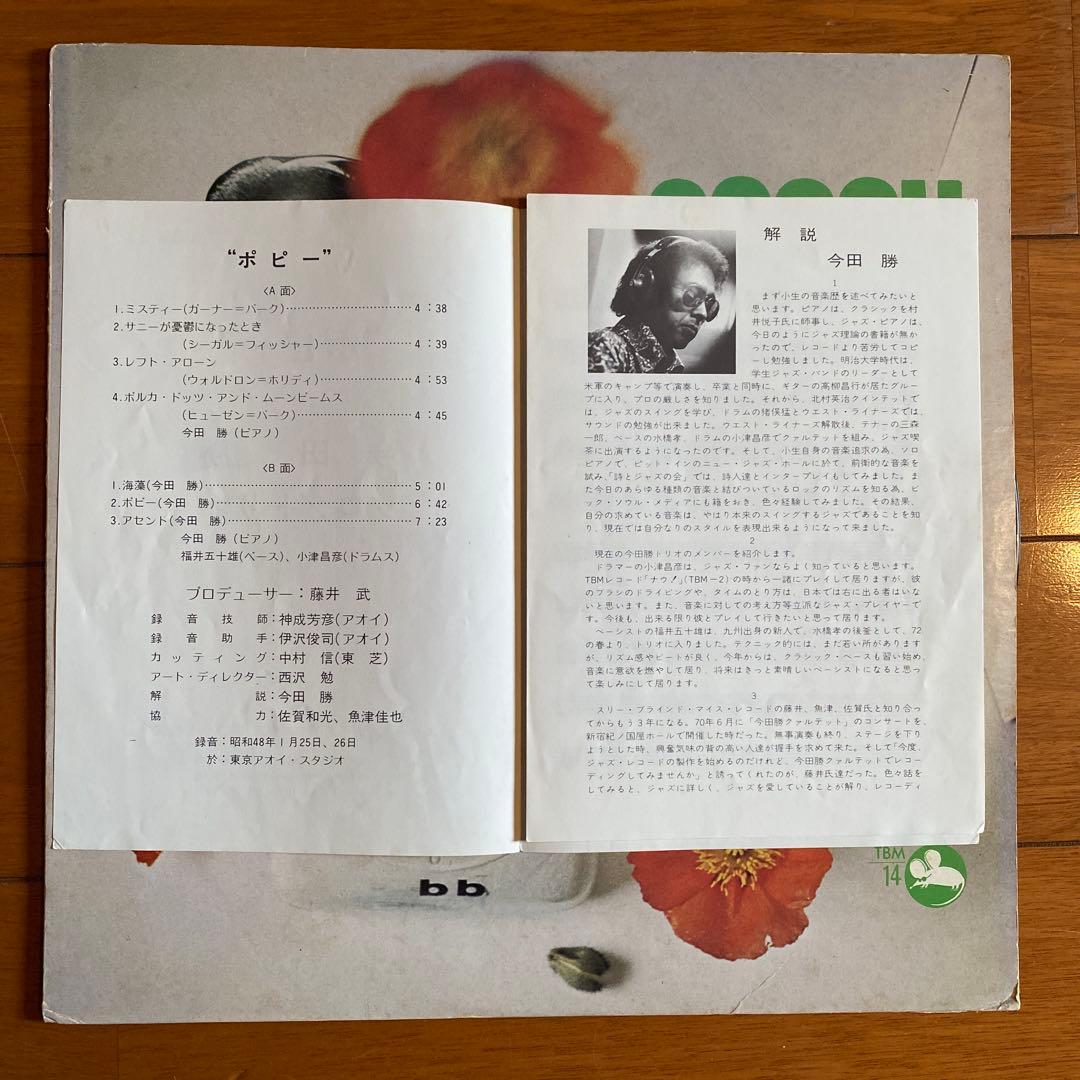 “ポピー”
〈A面〉
1.ミスティー(ガーナー=バーク)……………………4：38
2.サニーが憂鬱になったとき
(シーガル=フィッシャー)……………………4：39
3.レフト・アローン
(ウォルドロン=ホリディ)……………………4：53
4.ポルカ・ドッツ・アンド・ムーンビームス
(ヒューゼン=バーク)……………………4：45
今田　勝(ピアノ)
〈B面〉
1.海藻(今田　勝)……………………5：01
2.ポピー(今田　勝)……………………6：42
3.アセント(今田　勝)……………………7：23
今田　勝(ピアノ)
福井五十雄(ベース)、小津昌彦(ドラムス)
プロデューサー：藤井　武
録音技師：神成芳彦(アオイ)
録音助手：伊沢俊司(アオイ)
カッティング：中村　信(東　芝)
アート・ディレクター：西沢　勉
解説：今田　勝
協力：佐賀和光、魚津佳也
録音：昭和48年1月25日、26日
於：東京アオイ・スタジオ
解　説
今田　勝
1
まず小生の音楽歴を述べてみたいと
思います。ピアノは、クラシックを村
井悦子氏に師事し、ジャズ・ピアノは、
今日のようにジャズ理論の書籍が無か
ったので、レコードより苦労してコピ
ーし勉強しました。明治大学時代は、
学生ジャズ・バンドのリーダーとして
米軍のキャンプ等で演奏し、卒業と同時に、ギターの高柳昌行が居たグルー
プに入り、プロの厳しさを知りました。それから、北村英治クインテットで
は、ジャズのスイングを学び、ドラムの猪俣猛とウエスト・ライナーズでは、
サウンドの勉強が出来ました。ウエスト・ライナーズ解散後、テナーの三森
一郎、ベースの水橋孝、ドラムの小津昌彦でクァルテットを組み、ジャズ喫
茶に出演するようになったのです。そして、小生自身の音楽追求の為、ソロ
ピアノで、ピット・インのニュー・ジャズ・ホールに於て、前衛的な音楽を
試み、「詩とジャズの会」では、詩人達とインタープレイもしてみました。ま
た今日のあらゆる種類の音楽と結びついているロックのリズムを知る為、ビ
ック・ソウル・メディアにも籍をおき、色々経験してみました。その結果、
自分の求めている音楽は、やはり本来のスイングするジャズであることを知
り、現在では自分なりのスタイルを表現出来るようになって来ました。
2
現在の今田勝トリオのメンバーを紹介します。
ドラマーの小津昌彦は、ジャズ・ファンならよく知っていると思います。
TBMレコード「ナウ!」(TBM—2)の時から一諸にプレイして居りますが、彼
のブラシのドライビングや、タイムのとり方は、日本では右に出る者はいな
いと思います。また、音楽に対しての考え方等立派なジャズ・プレイヤーで
す。今後も、出来る限り彼とプレイして行きたいと思って居ります。
ベーシストの福井五十雄は、九州出身の新人で、水橋孝の後釜として、72
の春より、トリオに入りました。テクニック的には、まだ若い所があります
が、リズム感やビートが良く、今年からは、クラシック・ベースも習い始め、
音楽に意欲を燃やして居り、将来はきっと素晴しいベーシストになると思っ
て楽しみにして居ります。
3
スリー・ブラインド・マイス・レコードの藤井、魚津、佐賀氏と知り合っ
てからもう3年になる。70年6月に「今田勝クァルテット」のコンサートを、
新宿紀ノ国屋ホールで開催した時だった。無事演奏も終り、ステージを下り
ようとした時、興奮気味の背の高い人達が握手を求めて来た。そして「今度、
ジャズ・レコードの製作を始めるのだけれど、今田勝クァルテットでレコー
ディングしてみませんか」と誘ってくれたのが、藤井氏達だった。色々話を
してみると、ジャズに詳しく、ジャズを愛していることが解り、レコーディ
TBM
14
bb